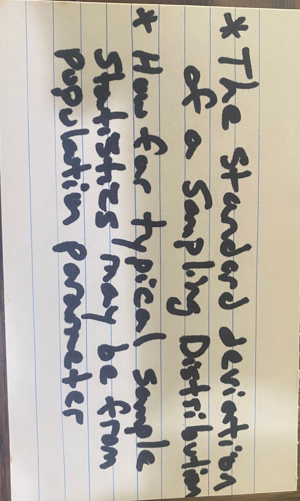 * The Standard deviation
of a Sampling Distribution
* How far typical sample
Statistics may be from
population parameter